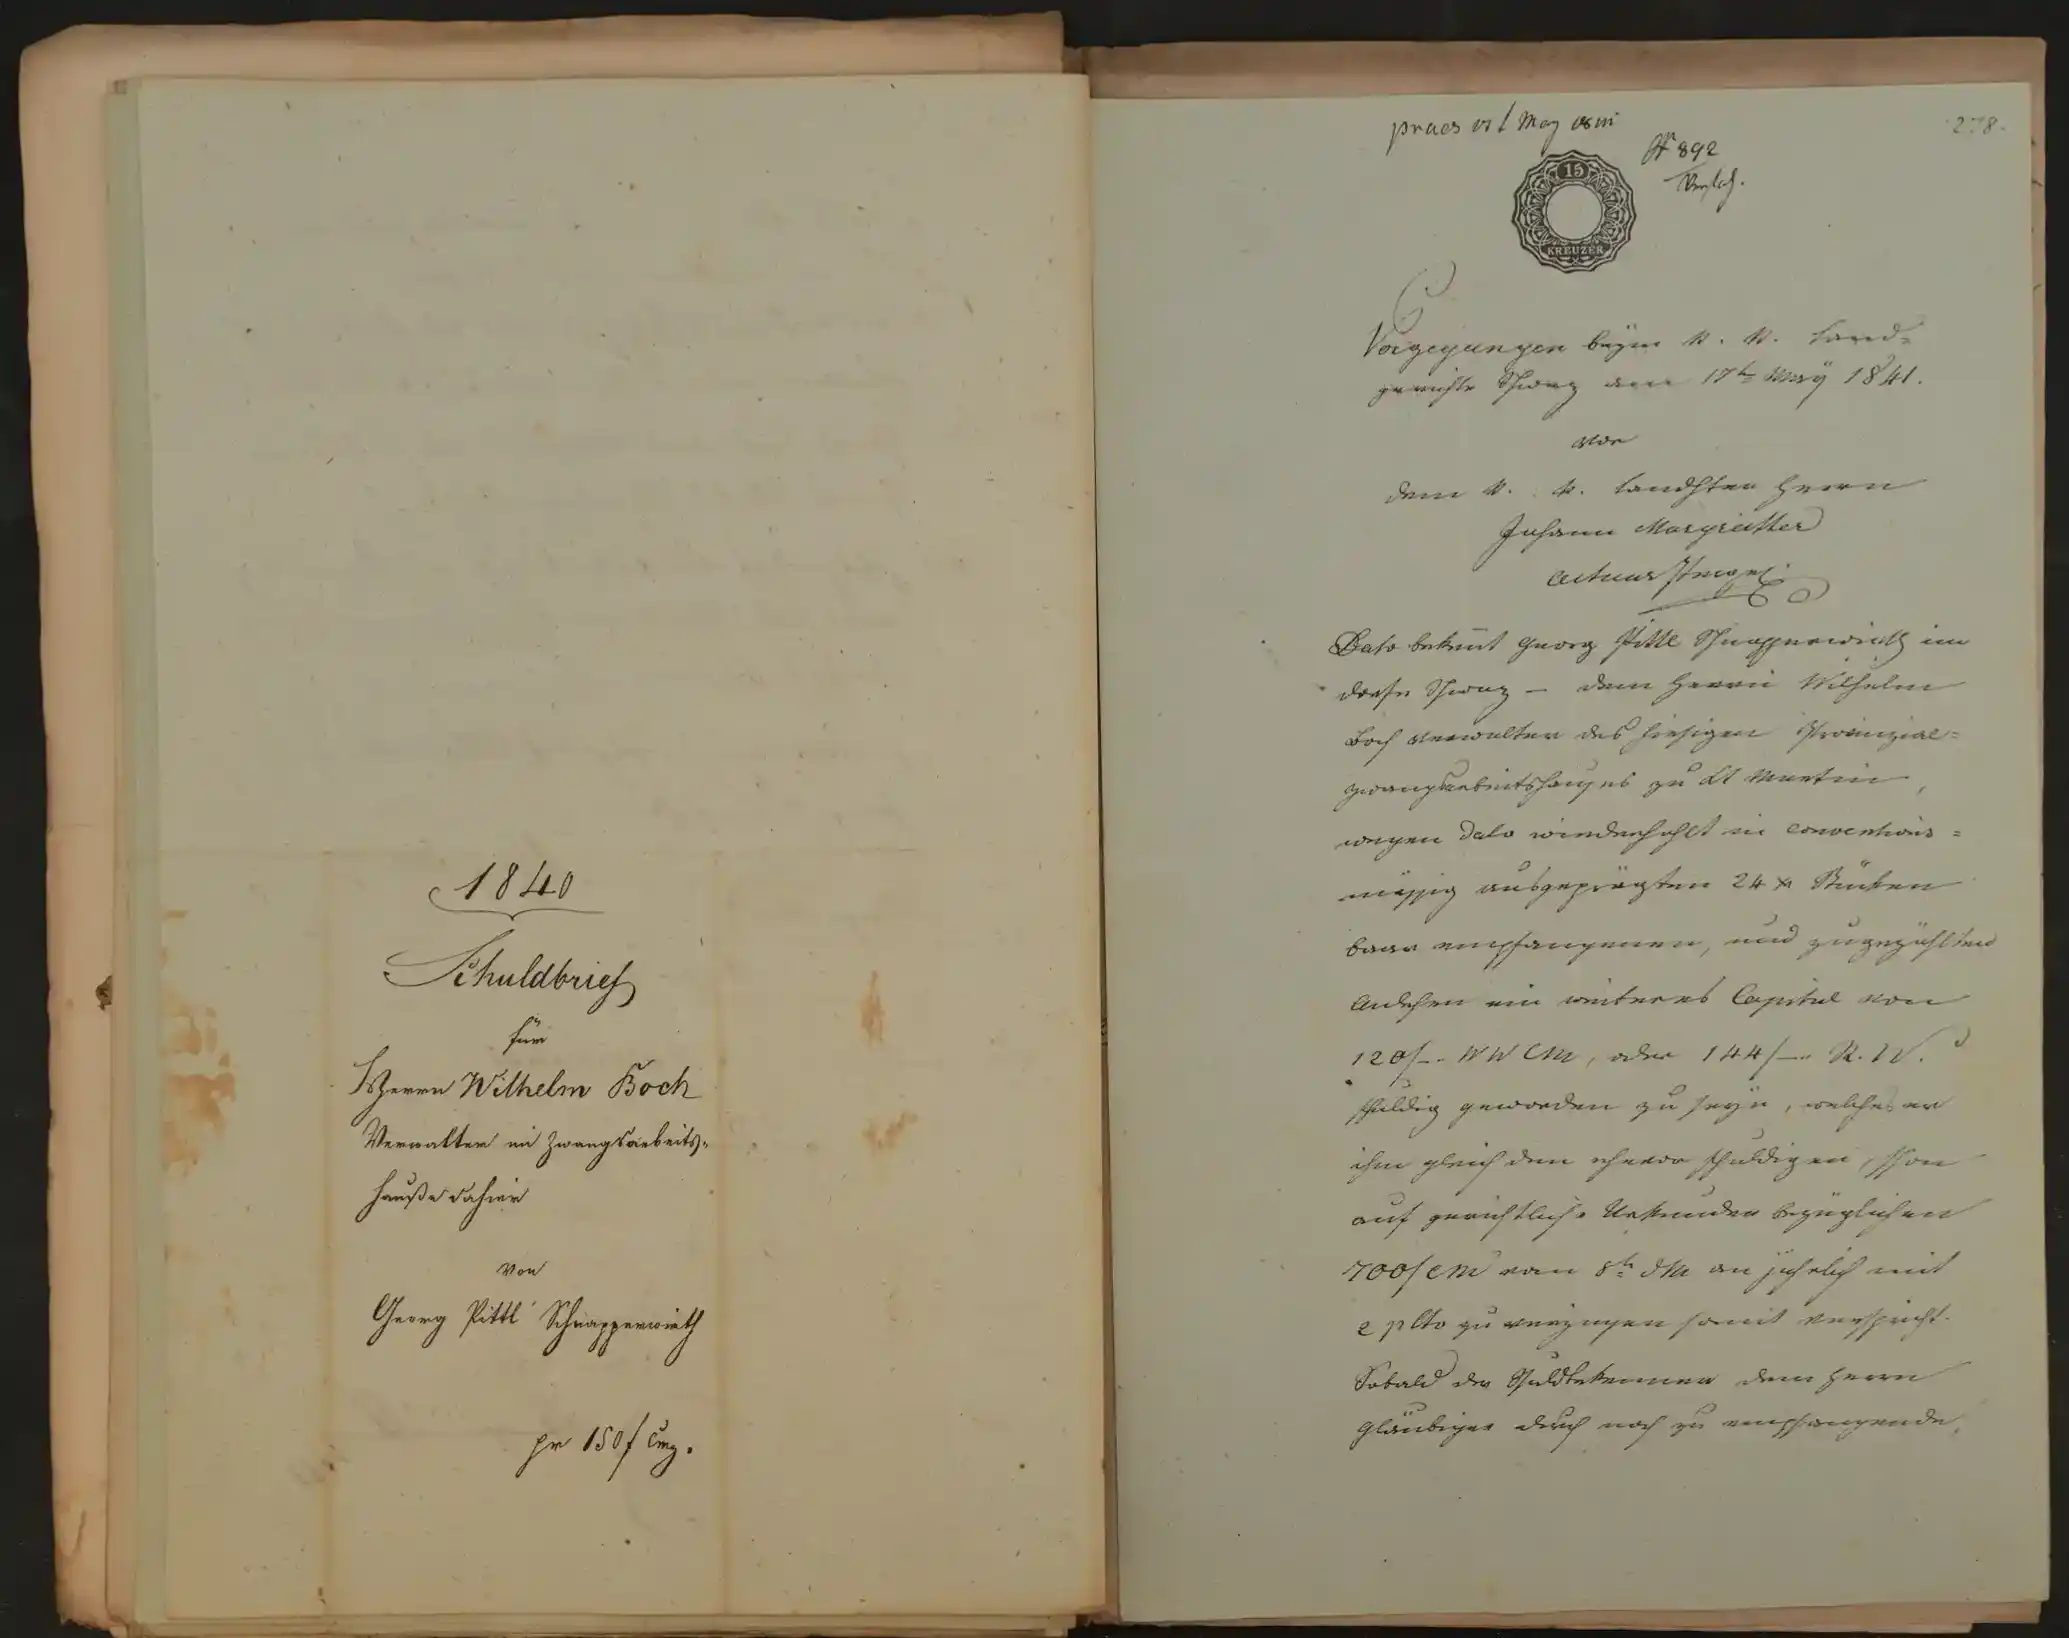 1840
Schuldbrief
für
Herrn Wilhelm Boch
Verwalter im Zwangsarbeits-
hauße dahier
von
Georg Pittl Schnapperwirth
pr 150 f Cmz.
praes May
278.
№ 892
Verfach.
15
KREUZER
Vorgegangen beym k. k. Land-
gerichte Schwaz am 17t May 1841.
vor
dem k. k. Landrichter Herrn
Johann Margreitter
Actuar
Dato bekennt Georg Pittl Schnapperwirth im
Dorfe Schwaz – dem Herrn Wilhelm
Boch Verwalter des hiesigen Provinzial-
zwangsarbeitshauses zu St Martin,
wegen Dato wiederhohlt in conventions-
mässig ausgeprägten 24 xr Stücken
baar empfangenen, und zugezählten
Anlehen ein weiteres Capital von
120 f – WW CM, oder 144 f – R. W.
schuldig geworden zu seyn, welches er
ihm gleich den ehevor schuldigen, schon
auf gerichtliche Urkunden bezüglichen
700 f CM vom 8t dM an jährlich mit
2 pCto zu verzinsen somit verspricht.
Sobald der Schuldbekenner dem Herrn
Gläubiger durch noch zu empfangende,